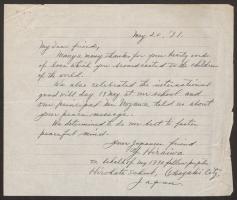 May 20, '31.
My dear friends,
Many many thanks for your hearty words
of love which you broadcasted to the children
of the world.
We also celebrated the international
good will day 18 May at our school and
our principal Mr Nozawa told us about
your peace message.
We determined to do our best to foster
peaceful mind.
Your Japanese friend
Hiraiwa
on behalf of my 1990 fellow pupils
Hirohata School, Okazaki City,
Japan